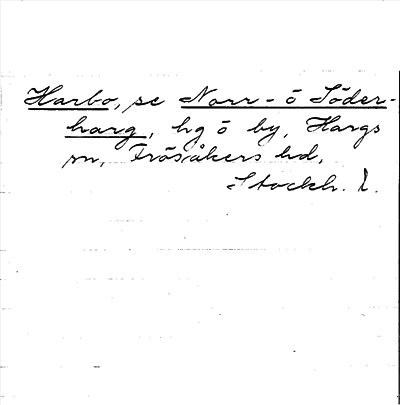 Harbo, se Norr- o Söder-
harg, hg o by, Hargs
sn, Frösåkers hd,
Stockh. l.